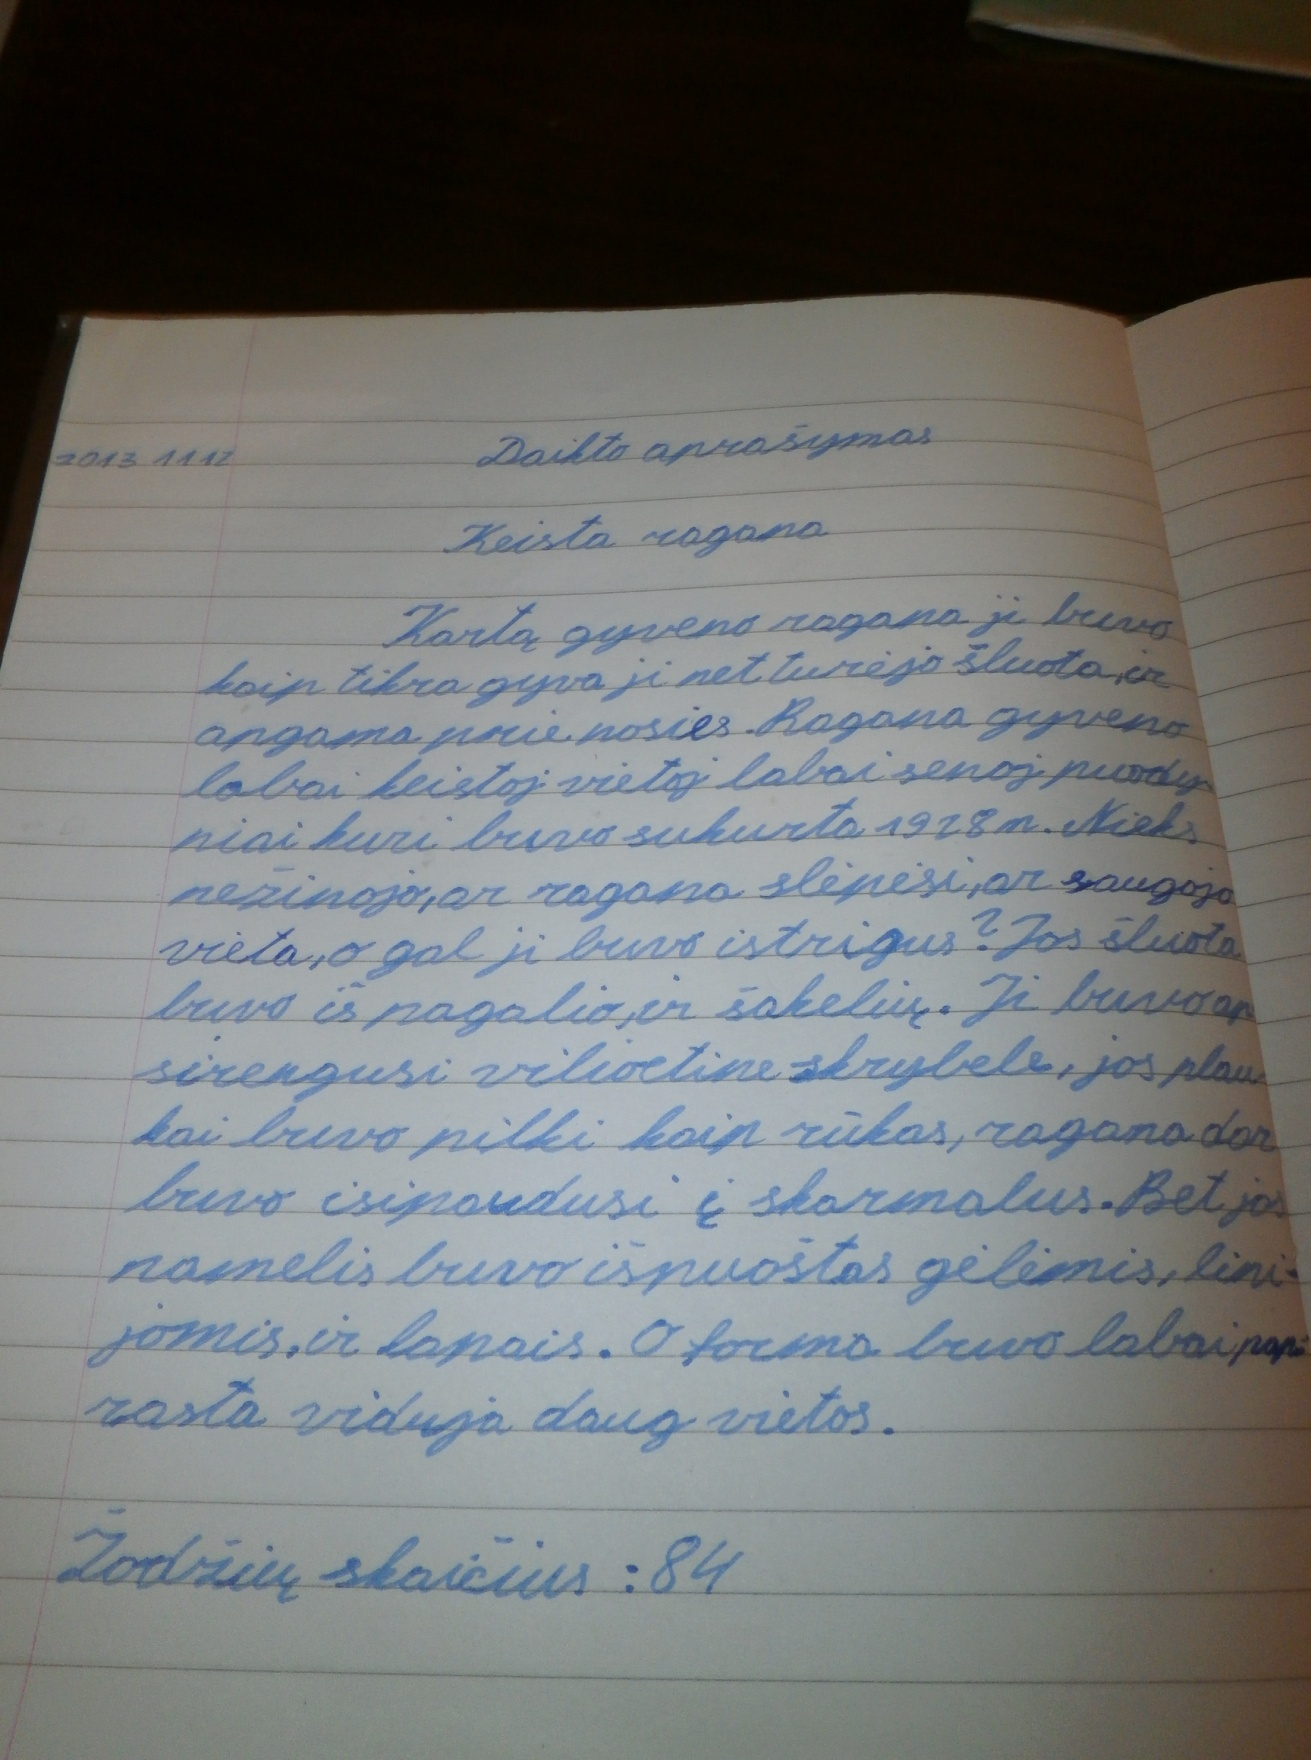 2013 11 12
Daikto aprašymas
Keista ragana
Kartą gyveno ragana ji buvo
kaip tikra gyva ji net turėjo šluota, ir
apgama prie nosies. Ragana gyveno
labai keistoj vietoj labai senoj puody
niai kuri buvo sukurta 1928 m. Nieks
nežinojo, ar ragana slėpėsi, ar saugojo
vieta, o gal ji buvo istrigus? Jos šluota
buvo iš pagalio, ir šakelių. Ji buvo ap
sirengusi vilioctine skrybele, jos plau-
kai buvo pilki kaip rūkas, ragana dar
buvo isipaudusi į skarmalus. Bet jos
namelis buvo išpuoštas gėlėmis, lini-
jomis, ir lapais. O forma buvo labai pap
rasta viduja daug vietos.
Žodžių skaičius : 84